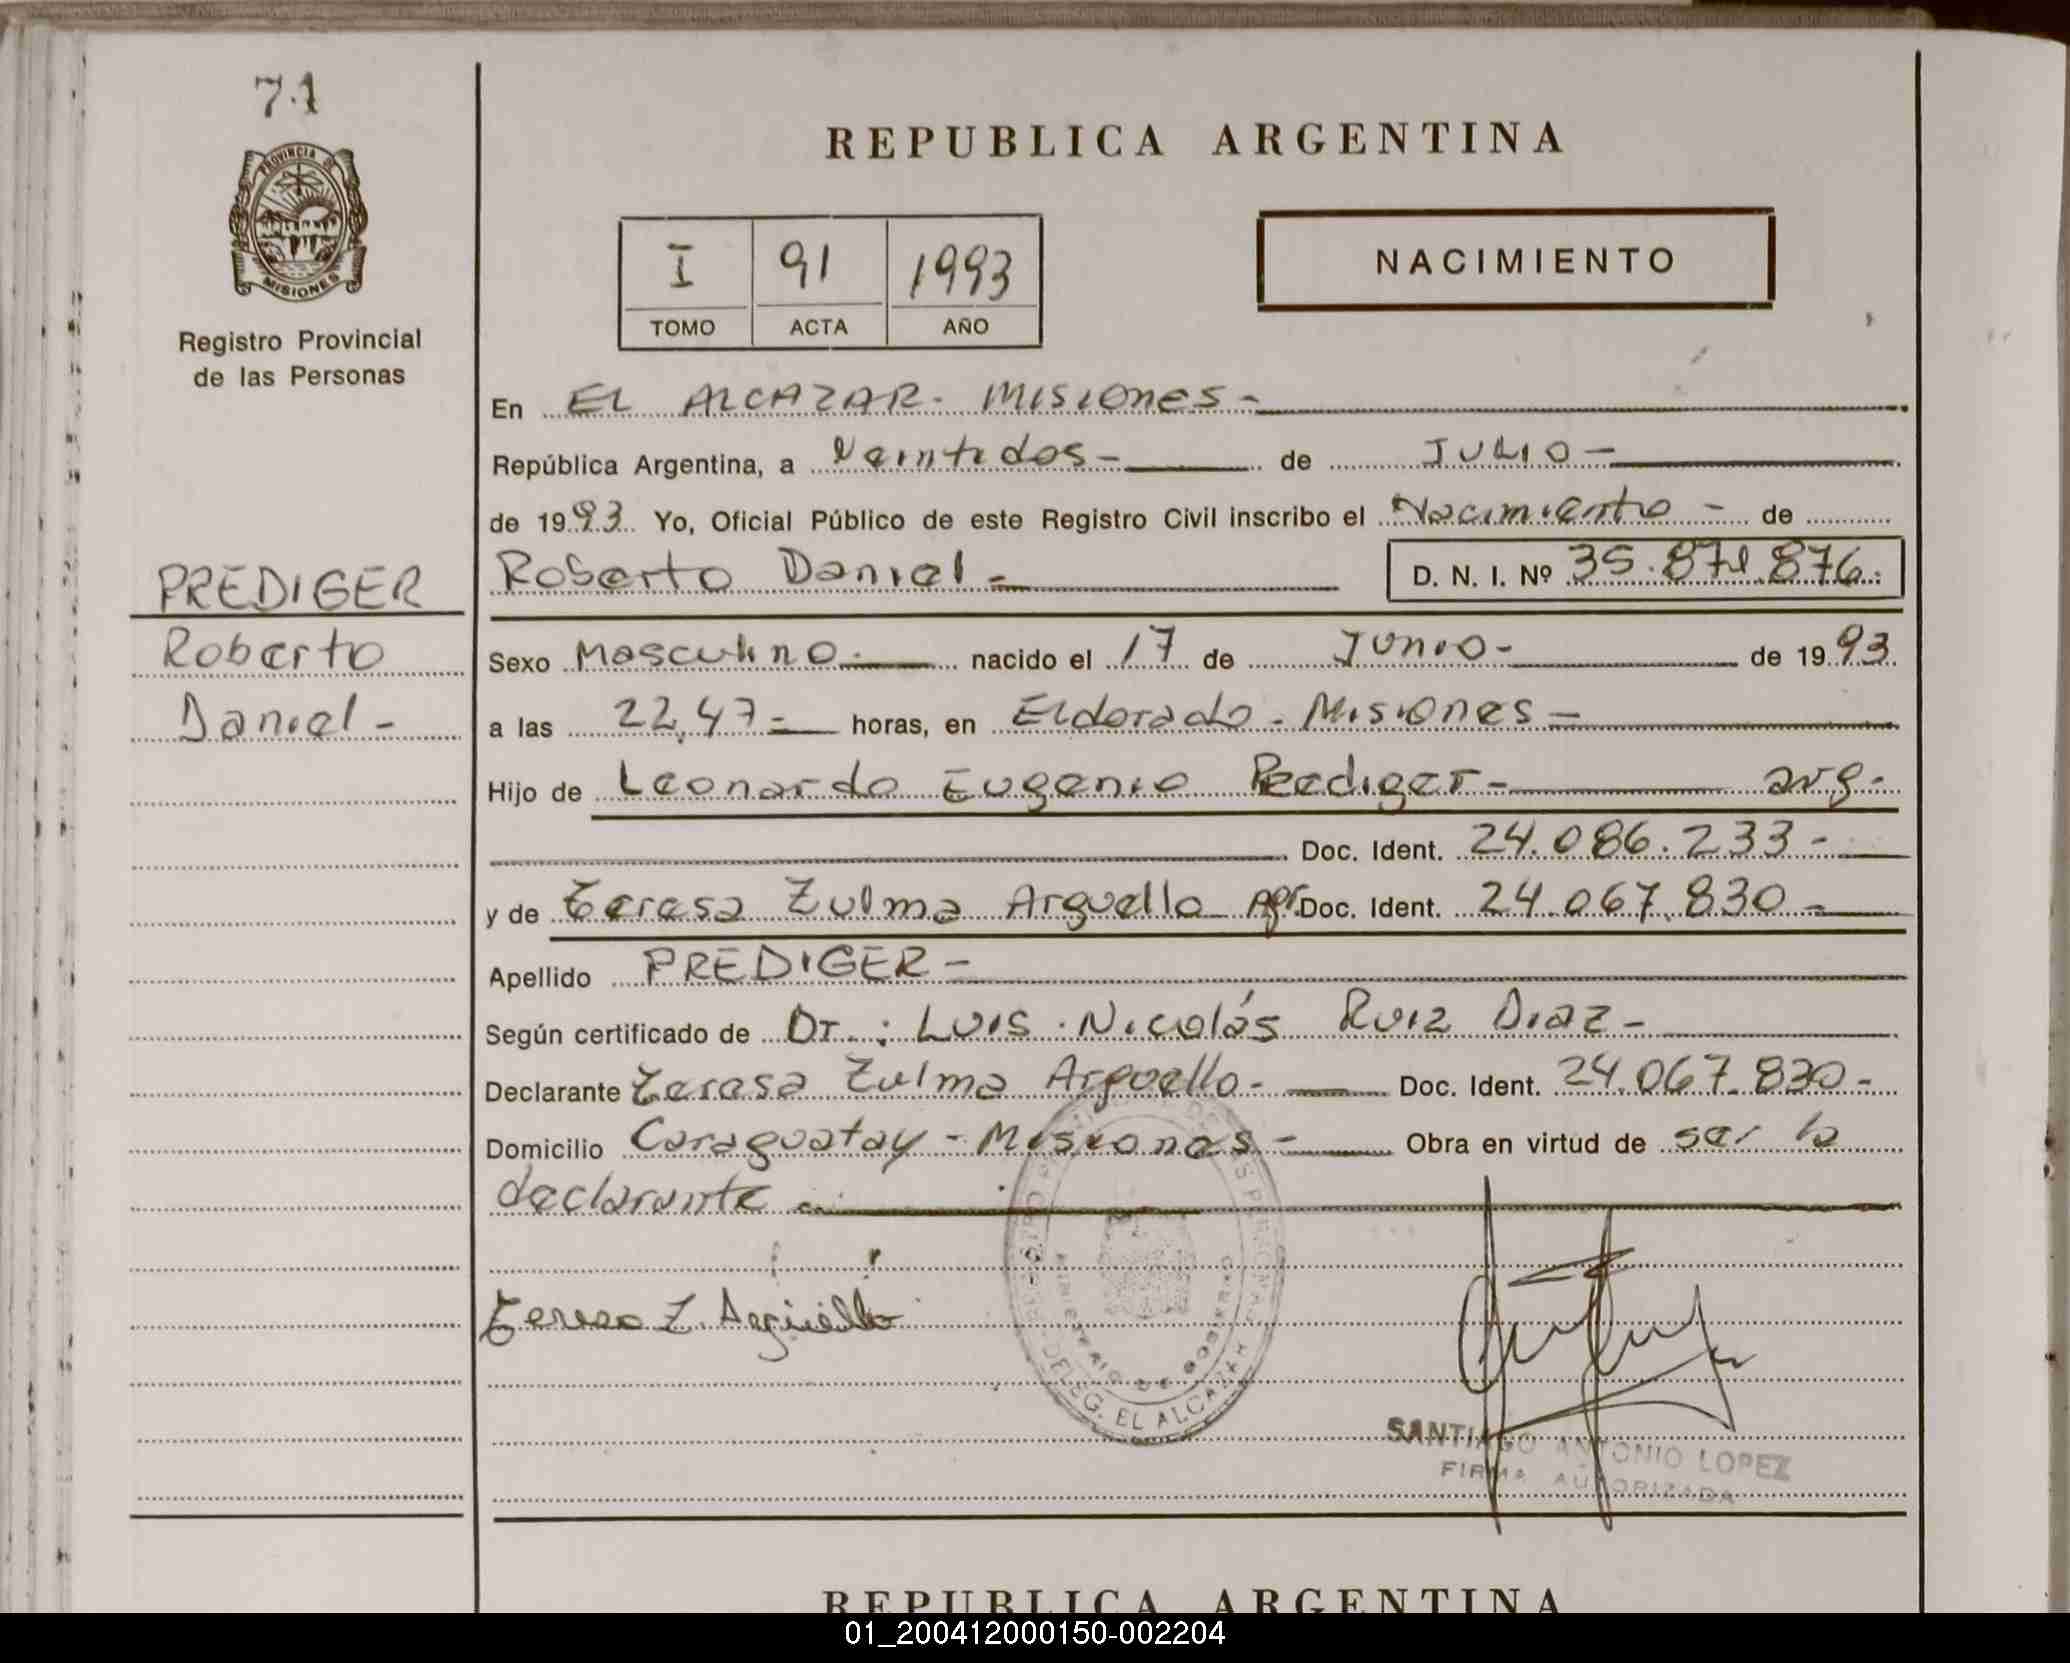 71
PROVINCIA DE
MISIONES
Registro Provincial
de las Personas
REPUBLICA ARGENTINA
I 91 1993
TOMO ACTA AÑO
NACIMIENTO
En EL ALCAZAR - MISIONES -
República Argentina, a Veintidos - de JULIO -
de 1993 Yo, Oficial Público de este Registro Civil inscribo el Nacimiento - de
PREDIGER
Roberto
Daniel -
Roberto Daniel - D. N. I. Nº 35.871.876.
Sexo Masculino - nacido el 17 de Junio - de 1993
a las 22,47 - horas, en Eldorado - Misiones -
Hijo de Leonardo Eugenio Prediger - arg.
Doc. Ident. 24.086.233 -
y de Teresa Zulma Arguello Agr. Doc. Ident. 24.067.830 -
Apellido PREDIGER -
Según certificado de Dr.: Luis Nicolás Ruiz Diaz -
Declarante Teresa Zulma Arguello - Doc. Ident. 24.067.830 -
Domicilio Caraguatay - Misiones - Obra en virtud de ser la
declarante -
Teresa Z. Arguello
MINISTERIO DE GOBIERNO
DELEG. EL ALCAZAR
SANTIAGO ANTONIO LOPEZ
FIRMA AUTORIZADA
REPUBLICA ARGENTINA
01_200412000150-002204